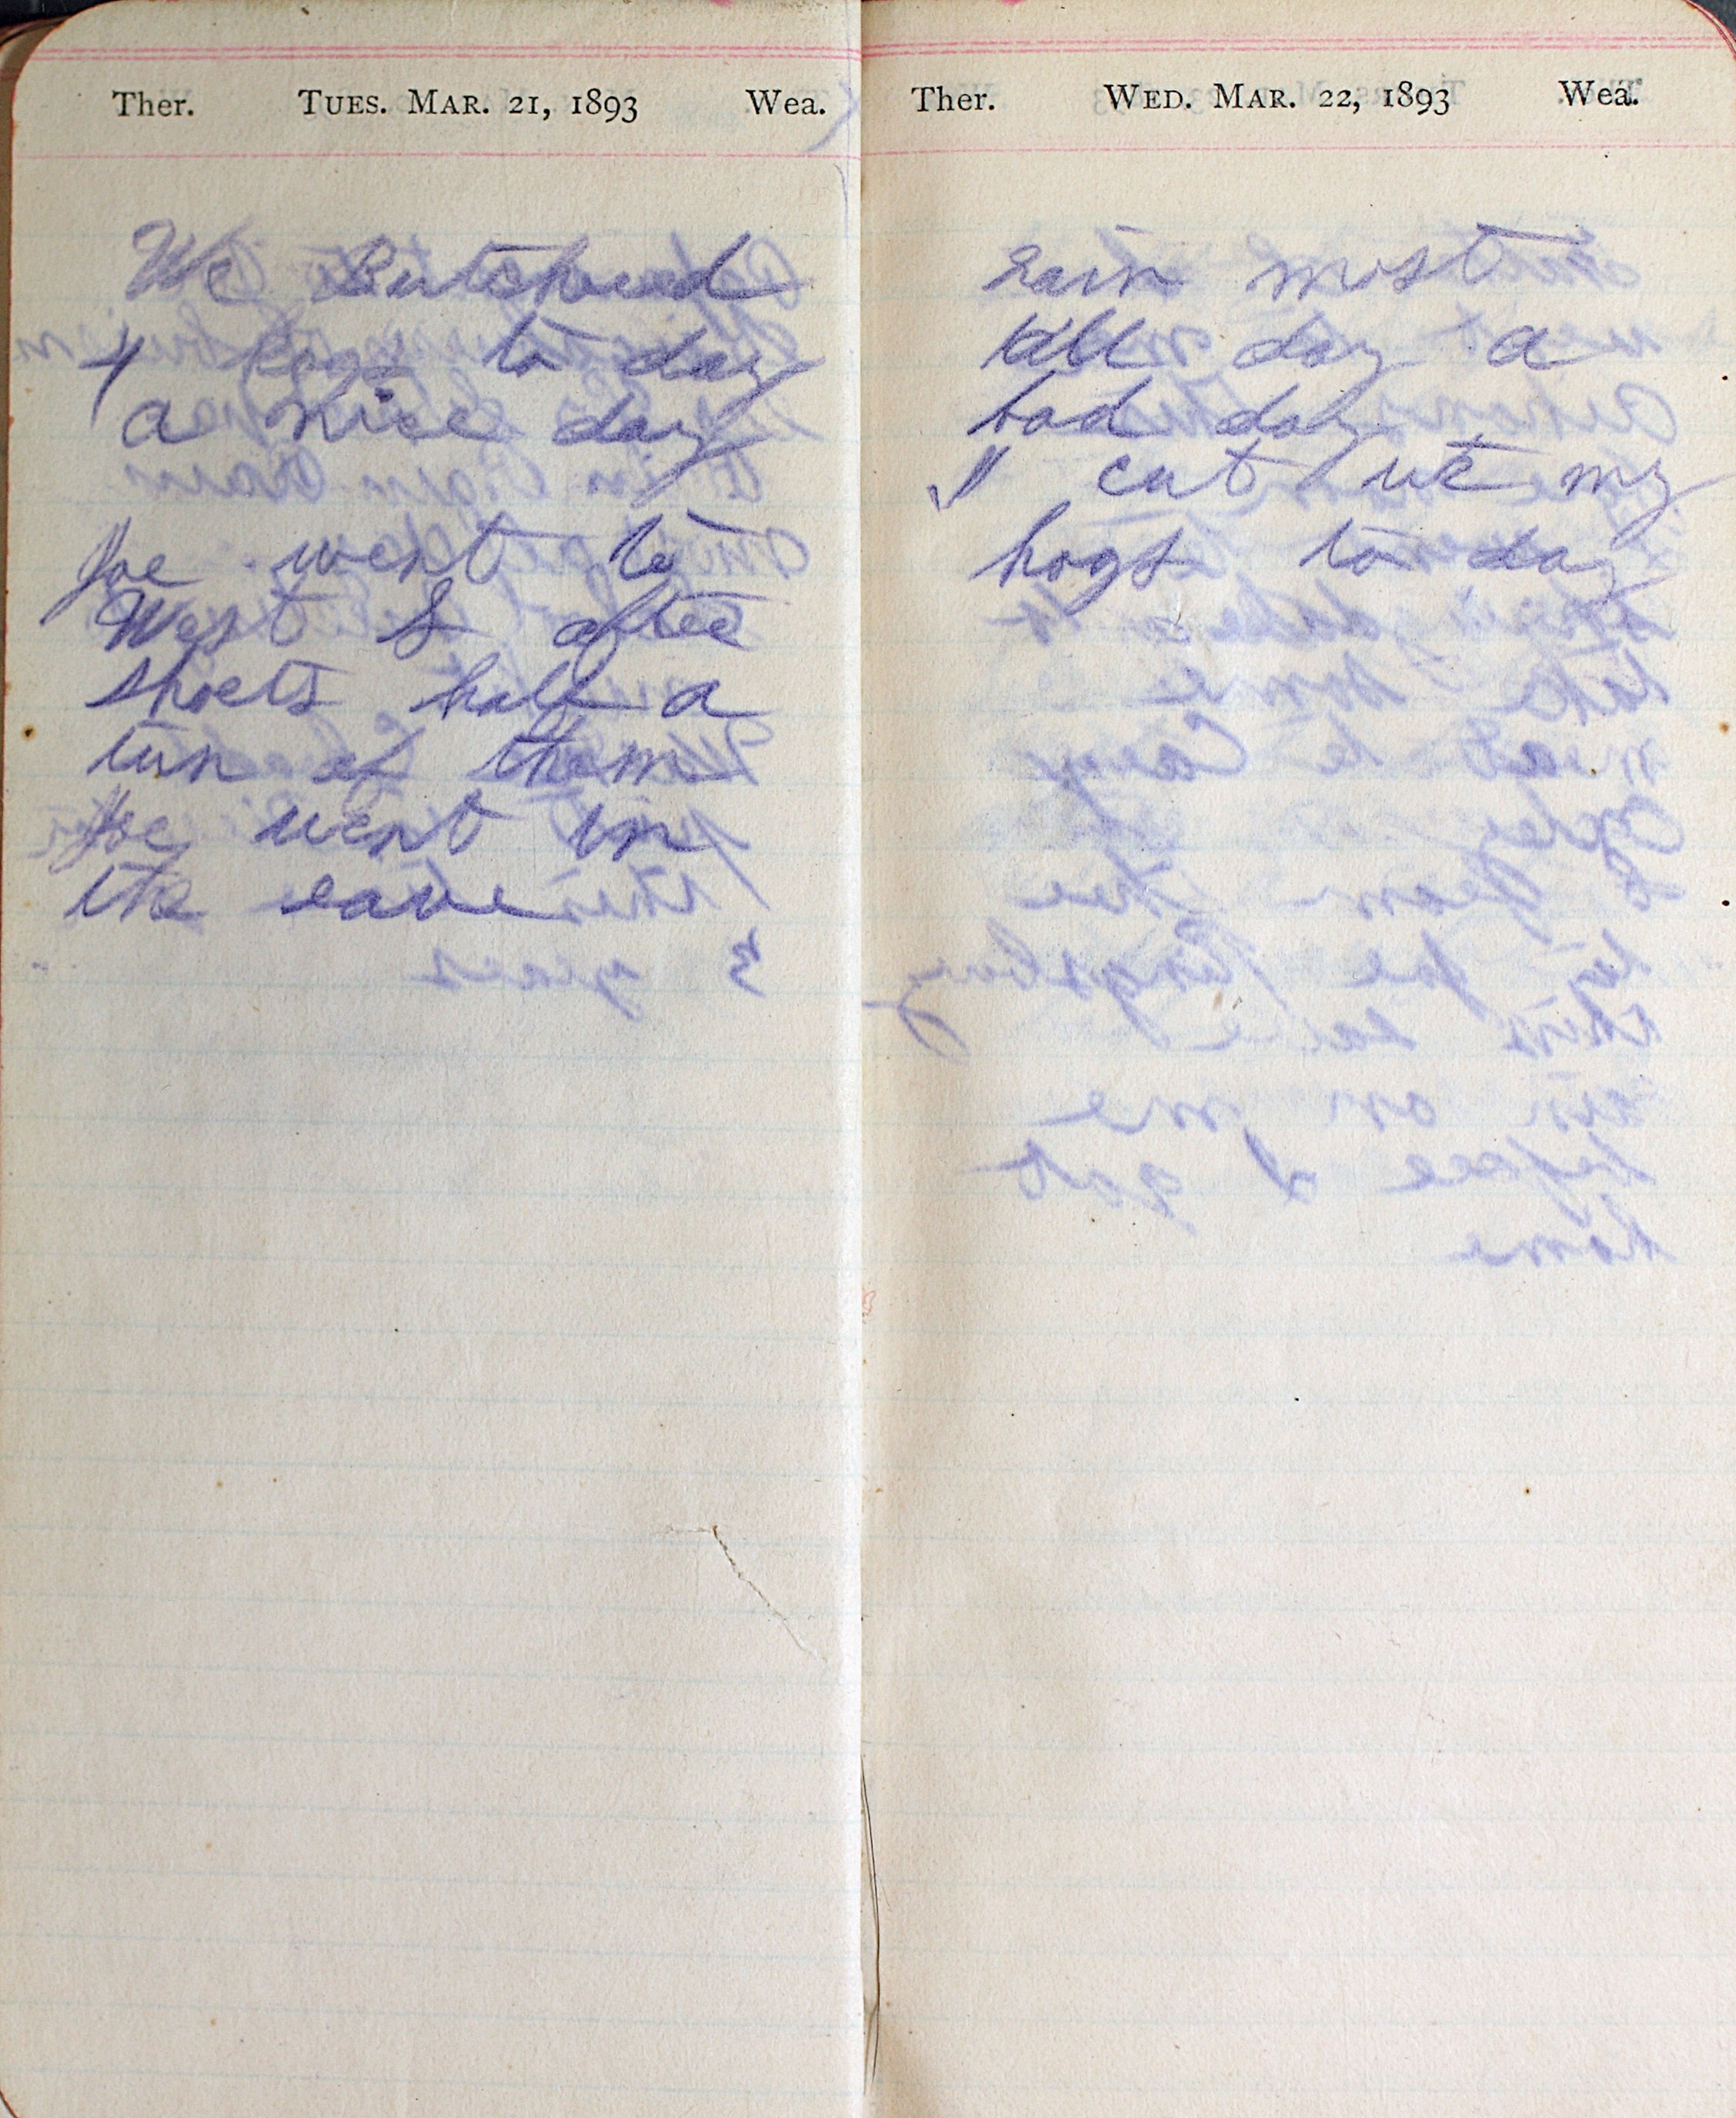 Ther. TUES. MAR. 21, 1893 Wea.
We Butchered
4 hogs to day
a nice day
Joe went to
West S after
shoets half a
tun of them
Joe went in
the
Ther. WED. MAR. 22, 1893 Wea.
rain most
all day a
bad day
I cut ut my
hogs to day